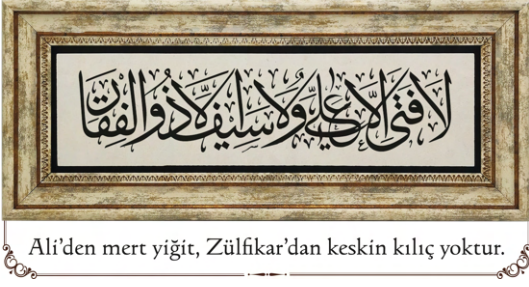 لا فتى الا علي ولا سيف الا ذو الفقار
Ali’den mert yiğit, Zülfikar’dan keskin kılıç yoktur.